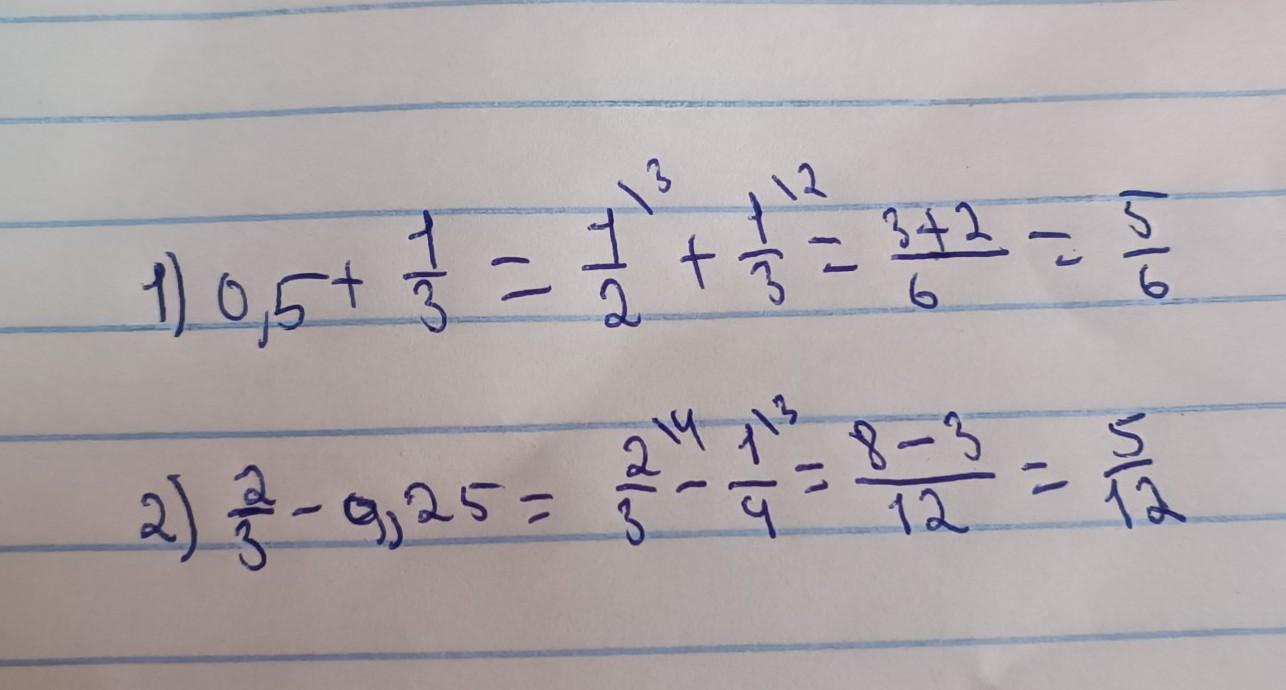 1) 0,5 + 1/3 = 1/2 \3 + 1/3 \2 = 3+2/6 = 5/6
2) 2/3 - 0,25 = 2/3 \4 - 1/4 \3 = 8-3/12 = 5/12